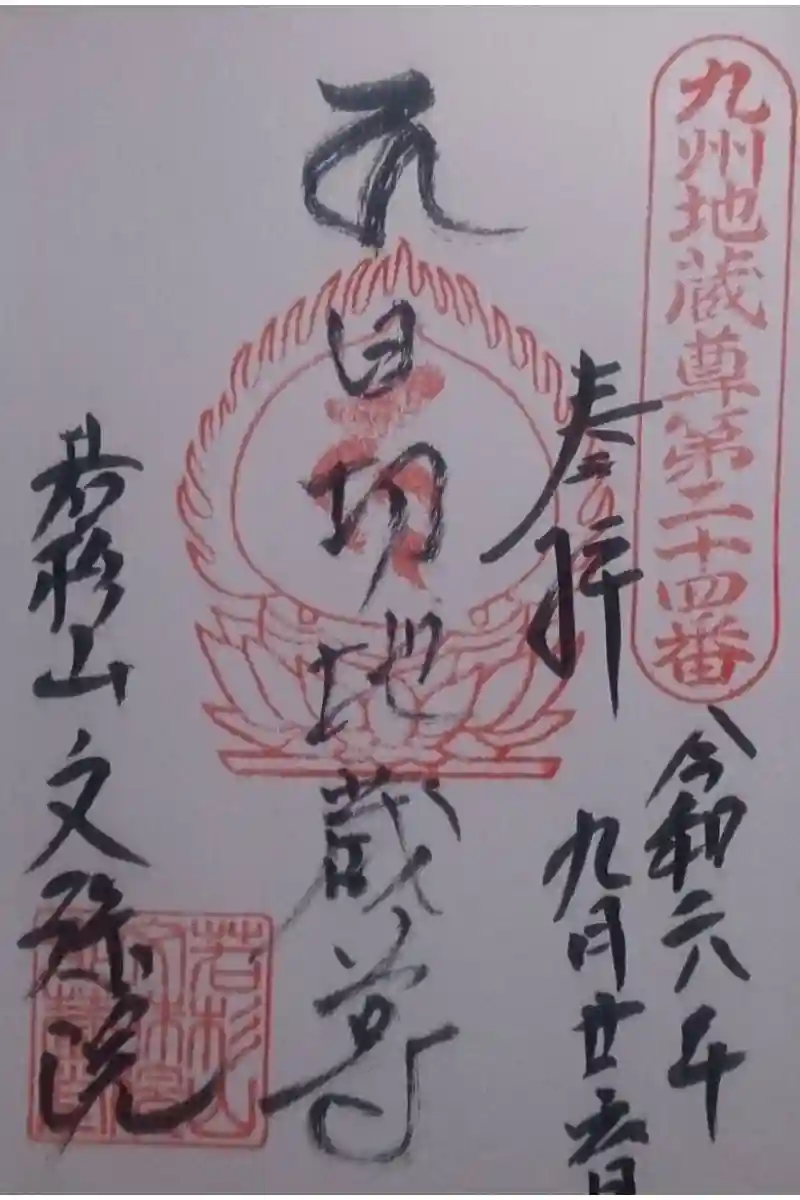 九州地蔵尊第二十四番
奉拝
令和六年
九月廿六日
日切地蔵尊
若杉山 文殊院
若杉山